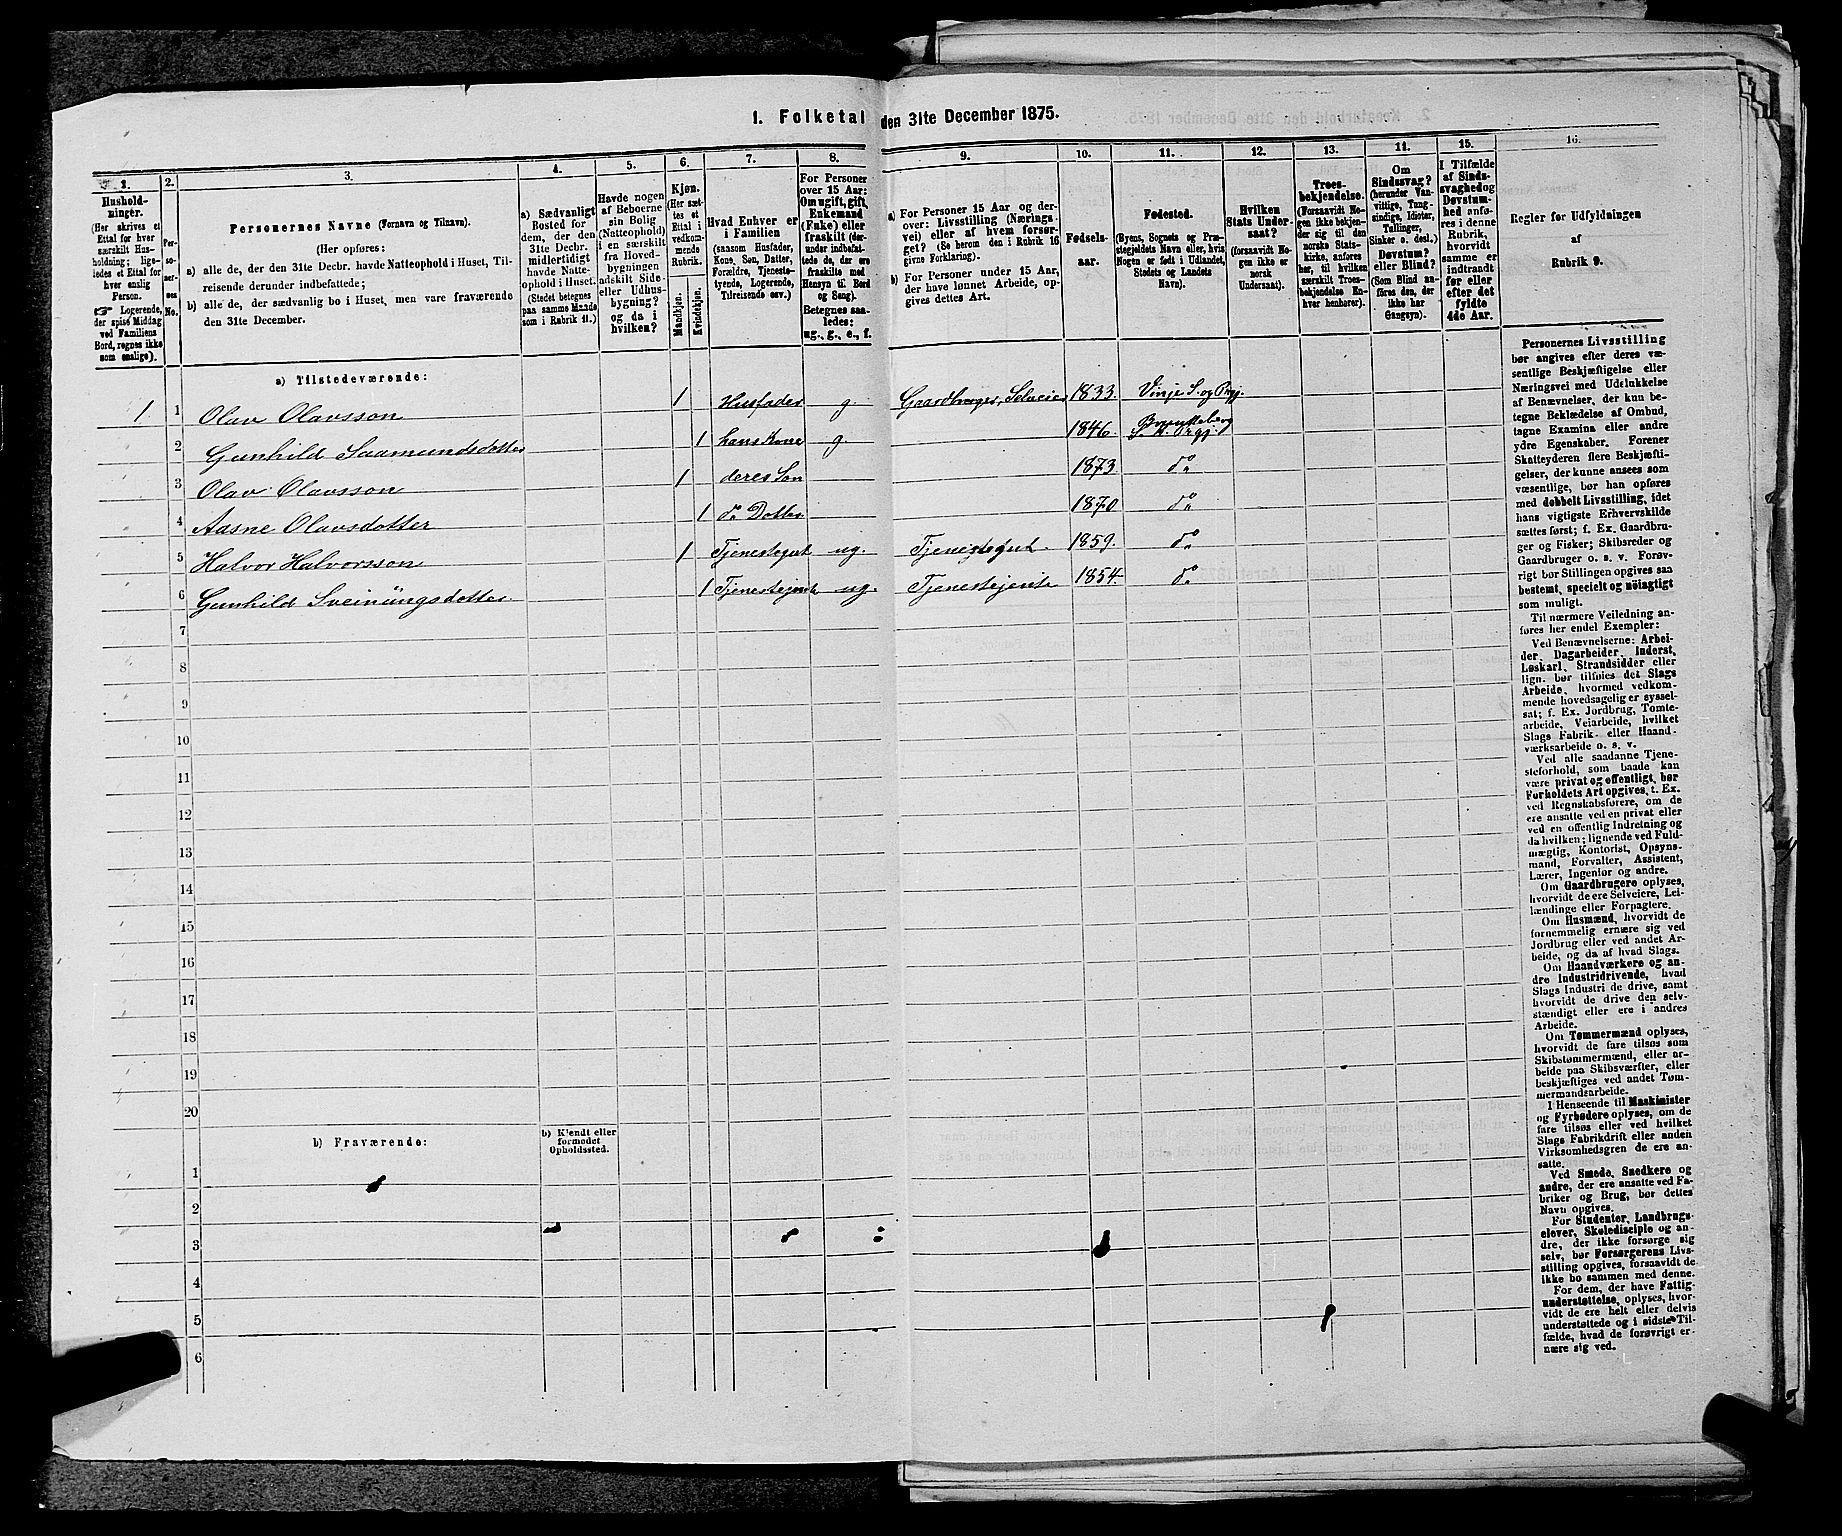 1. Folketal den 31te December 1875.
1.
Hushold-
ninger.
(Her skrives et
Ettal for hver
særskilt Hus-
holdning; lige-
ledes et Ettal for
hver enslig
Person.
☞ Logerende,
der spise Middag
ved Familiens
Bord, regnes ikke
som enslige).
2.
Per-
so-
ner-
nes
No.
3.
Personernes Navne (Fornavn og Tilnavn).
(Her opføres:
a) alle de, der den 31te Decbr. havde Natteophold i Huset, Til-
reisende derunder indbefattede;
b) alle de, der sædvanlig bo i Huset, men vare fraværende
den 31te December.
4.
a) Sædvanligt
Bosted for
dem, der den
31te Decbr.
midlertidigt
havde Natte-
ophold i Huset.
(Stedet betegnes
paa samme Maade
som i Rubrik 11.)
5.
Havde nogen
af Beboerne
sin Bolig
(Natteophold)
i en særskilt
fra Hoved-
bygningen
adskilt Side-
eller Udhus-
bygning?
og da i
hvilken?
6.
Kjøn.
(Her sæt-
tes et
Ettal i
vedkom-
mende
Rubrik.
Mandkjøn.
Kvindekjøn.
7.
Hvad Enhver er
i Familien
(saasom Husfader,
Kone, Søn, Datter,
Forældre, Tjeneste-
tyende, Logerende,
Tilreisende osv.)
8.
For Personer
over 15 Aar:
Om ugift, gift,
Enkemand
(Enke) eller
fraskilt (der-
under indbefat-
tede de, der ere
fraskilte med
Hensyn til Bord
og Seng).
Betegnes saa-
ledes:
ug., g., e., f.
9.
a) For Personer 15 Aar og der-
over: Livsstilling (Nærings-
vei) eller af hvem forsør-
get? (Se herom den i Rubrik 16
givne Forklaring).
b) For Personer under 15 Aar,
der have lønnet Arbeide, op-
gives dettes Art.
10.
Fødsels-
aar.
11.
Fødested.
(Byens, Sognets og Præ-
stegjeldets Navn eller, hvis
Nogen er født i Udlandet,
Stedets og Landets
Navn).
12.
Hvilken
Stats Under-
saat?
(forsaavidt No-
gen ikke er
norsk
Undersaat).
13.
Troes-
bekjendelse.
(Forsaavidt No-
gen ikke bekjen-
der sig til den
norske Stats-
kirke, anføres
her, til hvilken
særskilt Troes-
bekjendelse En-
hver henhører).
14.
Om
Sindssvag?
(herunder Van-
vittige, Tung-
sindige, Idioter,
Tullinger,
Sinker o. desl.)
Døvstum?
eller Blind?
(Som Blind an-
føres den, der
ikke har
Gangsyn).
15.
I Tilfælde
af Sinds-
svaghed og
Døvstum-
hed anfø-
res i denne
Rubrik,
hvorvidt
samme er
indtrandt
før eller
efter det
fyldte
4de Aar.
16.
Regler for Udfyldningen
af
Rubrik 9.
a) Tilstedeværende:
1 1 Olav Olavsson 1 Husfader g. Gaardbruger, Selveier 1833. Vinje S. og Prgj.
2 Gunhild Saamundsdotter 1 hans Kone g. 1846. Brunkeberg S. K. Prgj.
3 Olav Olavsson 1 deres Søn 1873. do
4 Aasne Olavsdotter 1 do Dotter 1870. do
5 Halvor Halvorsson 1 Tjenestegut ug. Tjenestegut 1859. do
6 Gunhild Sveinungsdotter 1 Tjenestejente ug. Tjenestejente 1854. do
7
8
9
10
11
12
13
14
15
16
17
18
19
20
b) Fraværende:
b) Kjendt eller
formodet
Opholdssted.
1
2
3
4
5
6
Personernes Livsstilling
bør angives efter deres væ-
sentlige Beskjæftigelse eller
Næringsvei med Udelukkelse
af Benævnelser, der kun be-
tegne Beklædelse af Ombud,
tagne Examina eller andre
ydre Egenskaber. Forener
Skatteyderen flere Beskjæfti-
gelser, der kunne ansees som
væsentlige, bør han opføres
med dobbelt Livsstilling, idet
hans vigtigste Erhvervskilde
sættes først; f. Ex. Gaardbru-
ger og Fisker; Skibsreder og
Gaardbruger o. s. v. Forøv-
rigt bør Stillingen opgives saa
bestemt, specielt og nöiagtigt
som muligt.
Til nærmere Veiledning an-
føres her endel Exempler:
Ved Benævnelserne: Arbei-
der, Dagarbeider, Inderst,
Løskarl, Strandsidder eller
lign. bør tilføies det Slags
Arbeide, hvormed vedkom-
mende hovedsagelig er syssel-
sat; f. Ex. Jordbrug, Tomte-
arbeide, Veiarbeide, hvilket
Slags Fabrik- eller Haand-
værksarbeide o. s. v.
Ved alle saadanne Tjene-
steforhold, som baade kan
være privat og offentligt, bør
Forholdets Art opgives, t. Ex.
ved Regnskabsførere, om de
ere ansatte ved en privat eller
ved en offentlig Indretning og
da hvilken; lignende ved Fuld-
mægtig, Kontorist, Opsyns-
mand, Forvalter, Assistent,
Lærer, Ingeniør og andre.
Om Gaardbrugere oplyses,
hvorvidt de ere Selveiere, Lei-
lændinge eller Forpagtere.
Om Husmænd, hvorvidt de
fornemmelig ernære sig ved
Jordbrug eller ved andet Ar-
beide, og da af hvad Slags.
Om Haandværkere og an-
dre Industridrivende, hvad
Slags Industri de drive, samt
hvorvidt de drive den selv-
stændigt eller ere i andres
Arbeide.
Om Tømmermænd oplyses,
hvorvidt de fare tilsøs som
Skibstømmermænd, eller ar-
beide paa Skibsværfter, eller
beskjæftiges ved andet Tøm-
mermandsarbeide.
I Henseende til Maskinister
og Fyrbødere oplyses, om de
fare tilsøs eller ved hvilket
Slags Fabrikdrift eller anden
Virksomhedsgren de ere an-
satte.
Ved Smede, Snedkere og
andre, der ere ansatte ved Fa-
briker og Brug, bør dettes
Navn opgives.
For Studenter, Landbrugs-
elever, Skoledisciple og an-
dre, der ikke forsørge sig
selv, bør Forsørgerens Livs-
stilling opgives, forsaavidt de
ikke bo sammen med denne.
For dem, der have Fattig-
understøttelse, oplyses, hvor-
vidt de ere helt eller delvis
understøttede og i sidste Til-
fælde, hvad de forøvrigt er-
nære sig ved.